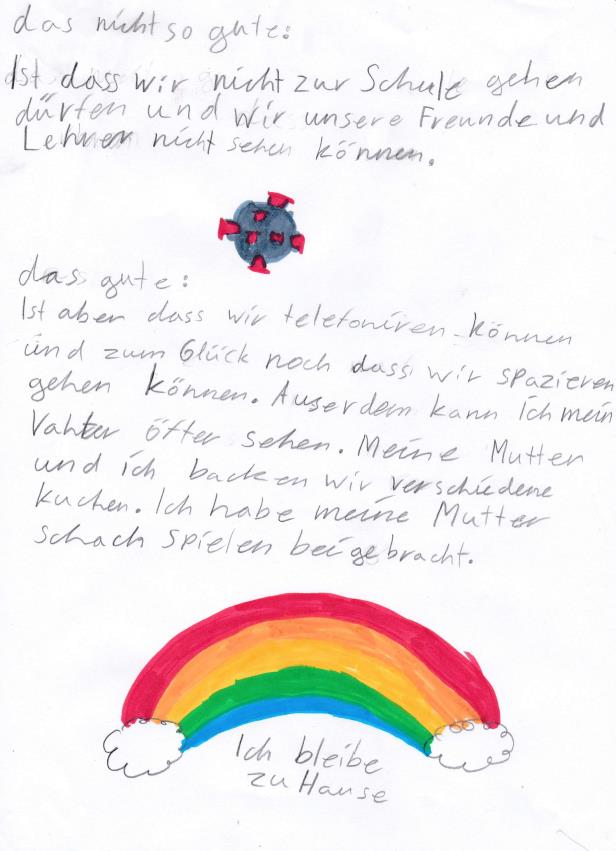 das nicht so gute:
Ist dass wir nicht zur Schule gehen
dürfen und wir unsere Freunde und
Lehrer nicht sehen können.
das gute:
Ist aber dass wir telefoniren können
und zum Glück noch dass wir spazieren
gehen können. Auserdem kann ich mein
Vahter öfter sehen. Meine Mutter
und ich backen wir verschiedene
kuchen. Ich habe meine Mutter
schach spielen beigebracht.
Ich bleibe
zu Hause